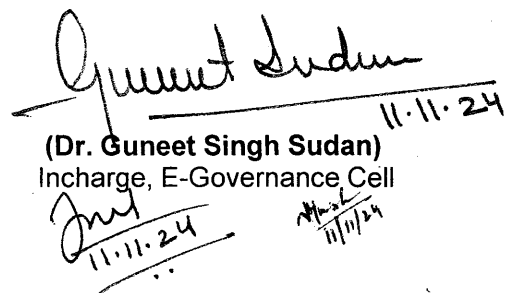 Guneet Sudan
11.11.24
(Dr. Guneet Singh Sudan)
Incharge, E-Governance Cell
11.11.24
11/11/24